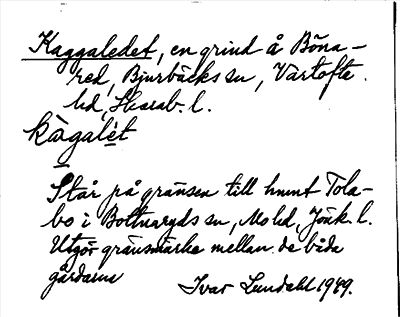 Kaggaledet, en grind å Böna-
red, Bjurbäcks sn, Vartofte
hd, Skarab. l.
kàgalèt
Står på gränsen till hmnt Tola-
bo i Bottnaryds sn, Mo hd, Jönk. l.
Utgör gränsmärke mellan de båda
gårdarna
Ivar Lundahl 1949.